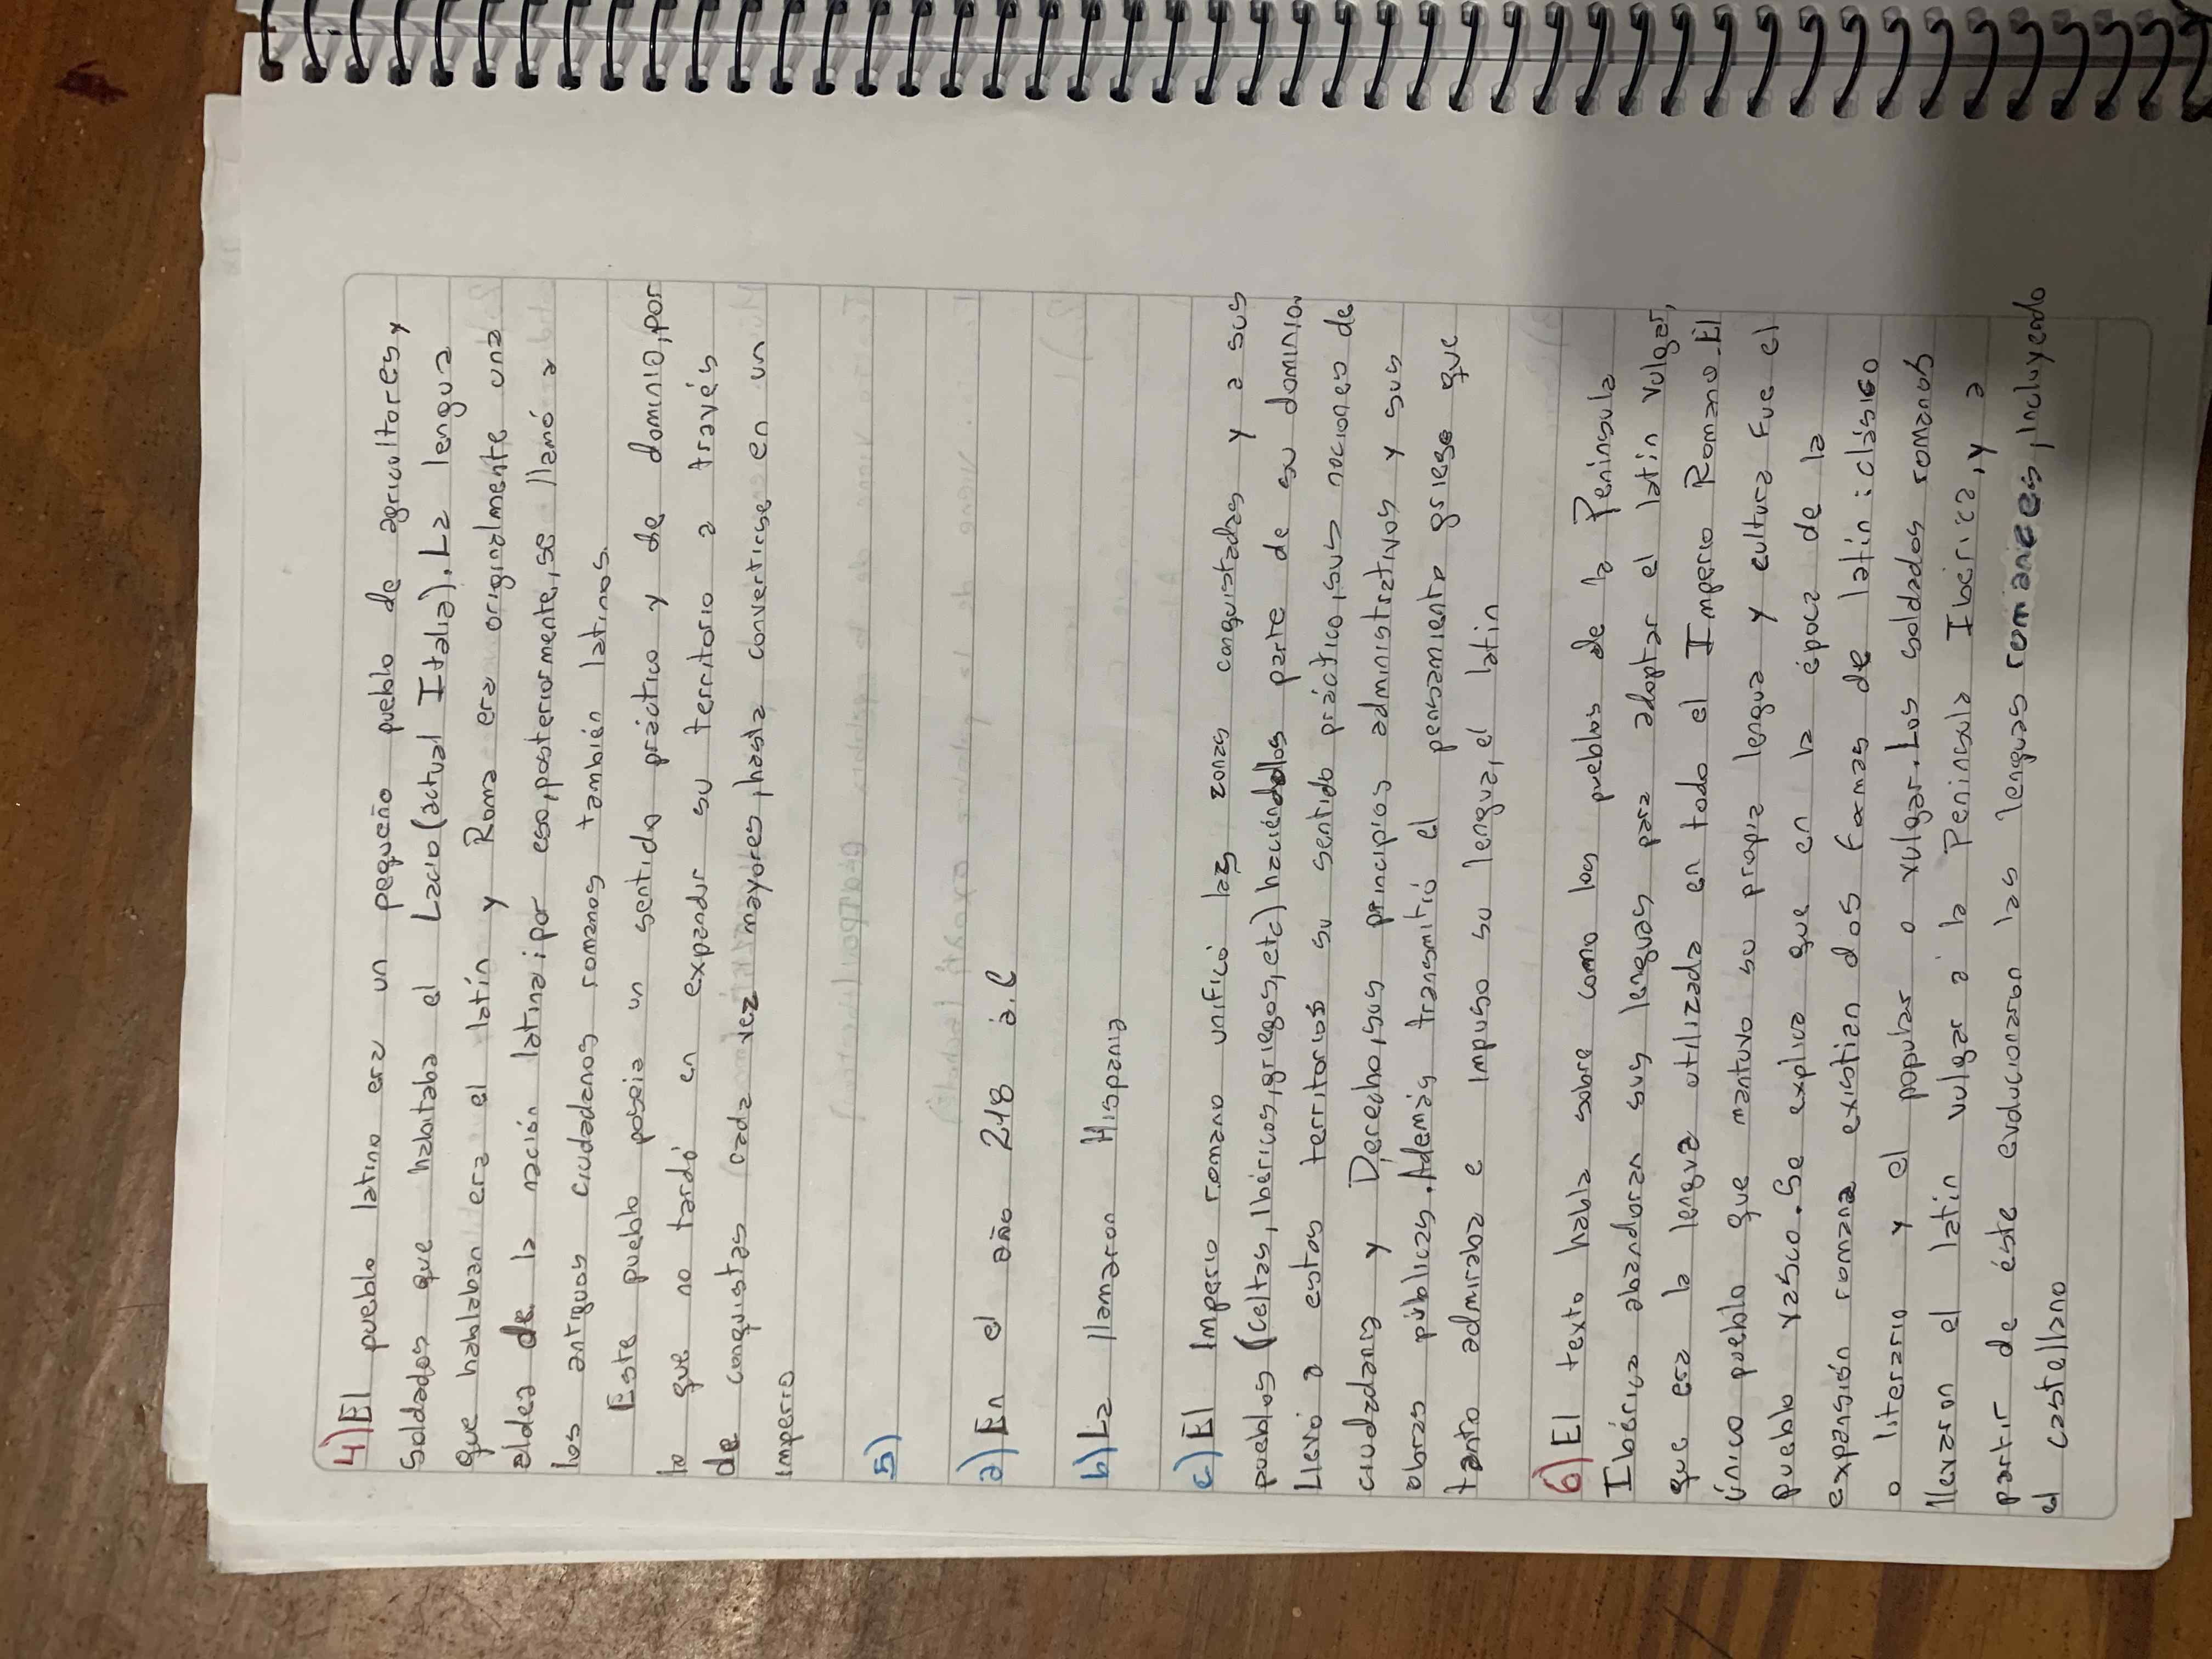 4) El pueblo latino era un pequeño pueblo de agricultores, y
soldados que habitaba el Lacio (actual Italia). La lengua
que hablaban era el latín y Roma era originalmente una
aldea de la nación latina; por eso, posteriormente, se llamó a
los antiguos ciudadanos romanos también latinos.
Este pueblo poseía un sentido práctico y de dominio, por
lo que no tardó en expandir su territorio a través
de conquistas cada vez mayores, hasta convertirse en un
imperio
5)
a) En el año 218 a.C
b) La llamaron Hispania
c) El Imperio romano unificó las zonas conquistadas y a sus
pueblos (celtas, ibéricos, griegos, etc) haciéndolos parte de su dominio.
Llevó a estos territorios su sentido práctico, sus nociones de
ciudadanía y Derecho, sus principios administrativos y sus
obras públicas. Además transmitió el pensamiento griego que
tanto admiraba e impuso su lengua, el latín
6) El texto habla sobre como los pueblos de la Península
Ibérica abandoran sus lenguas para adoptar el latín vulgar,
que era la lengua utilizada en todo el Imperio Romano. El
único pueblo que mantuvo su propia lengua y cultura fue el
pueblo vasco. Se explica que en la época de la
expansión romana existian dos formas de latín: clásico
o literario y el popular o vulgar. Los soldados romanos
llevaron el latín vulgar a la Península Ibérica, y a
partir de éste evolucionaron las lenguas romances, incluyendo
el castellano